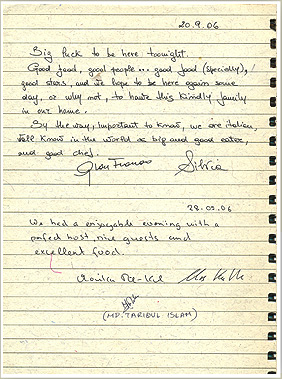 20.9.06
Big luck to be here tounight.
Good food, good people... good food (specially),
good stars, and we hope to be here again some
day, or why not, to haute this kindly family
in our home.
By the way, important to know, we are italian,
well know in the world as big and good eater,
and good chef.
Gianfranco Silvia
28.09.06
We had a enjoyable evening with a
perfect host, nice guests and
excellent food.
(MD. TARIQUL ISLAM)